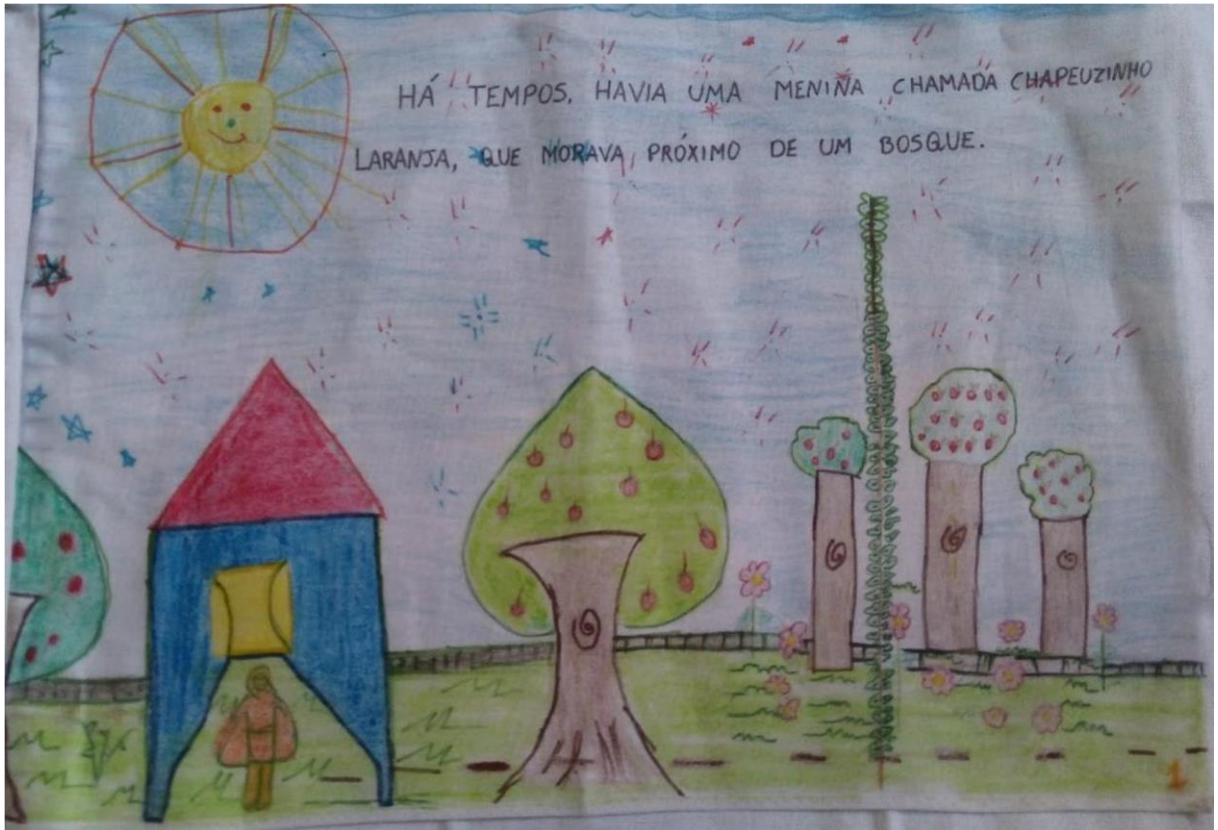 HÁ TEMPOS, HAVIA UMA MENIÑA CHAMADA CHAPEUZINHO
LARANJA, QUE MORAVA, PRÓXIMO DE UM BOSQUE.
1